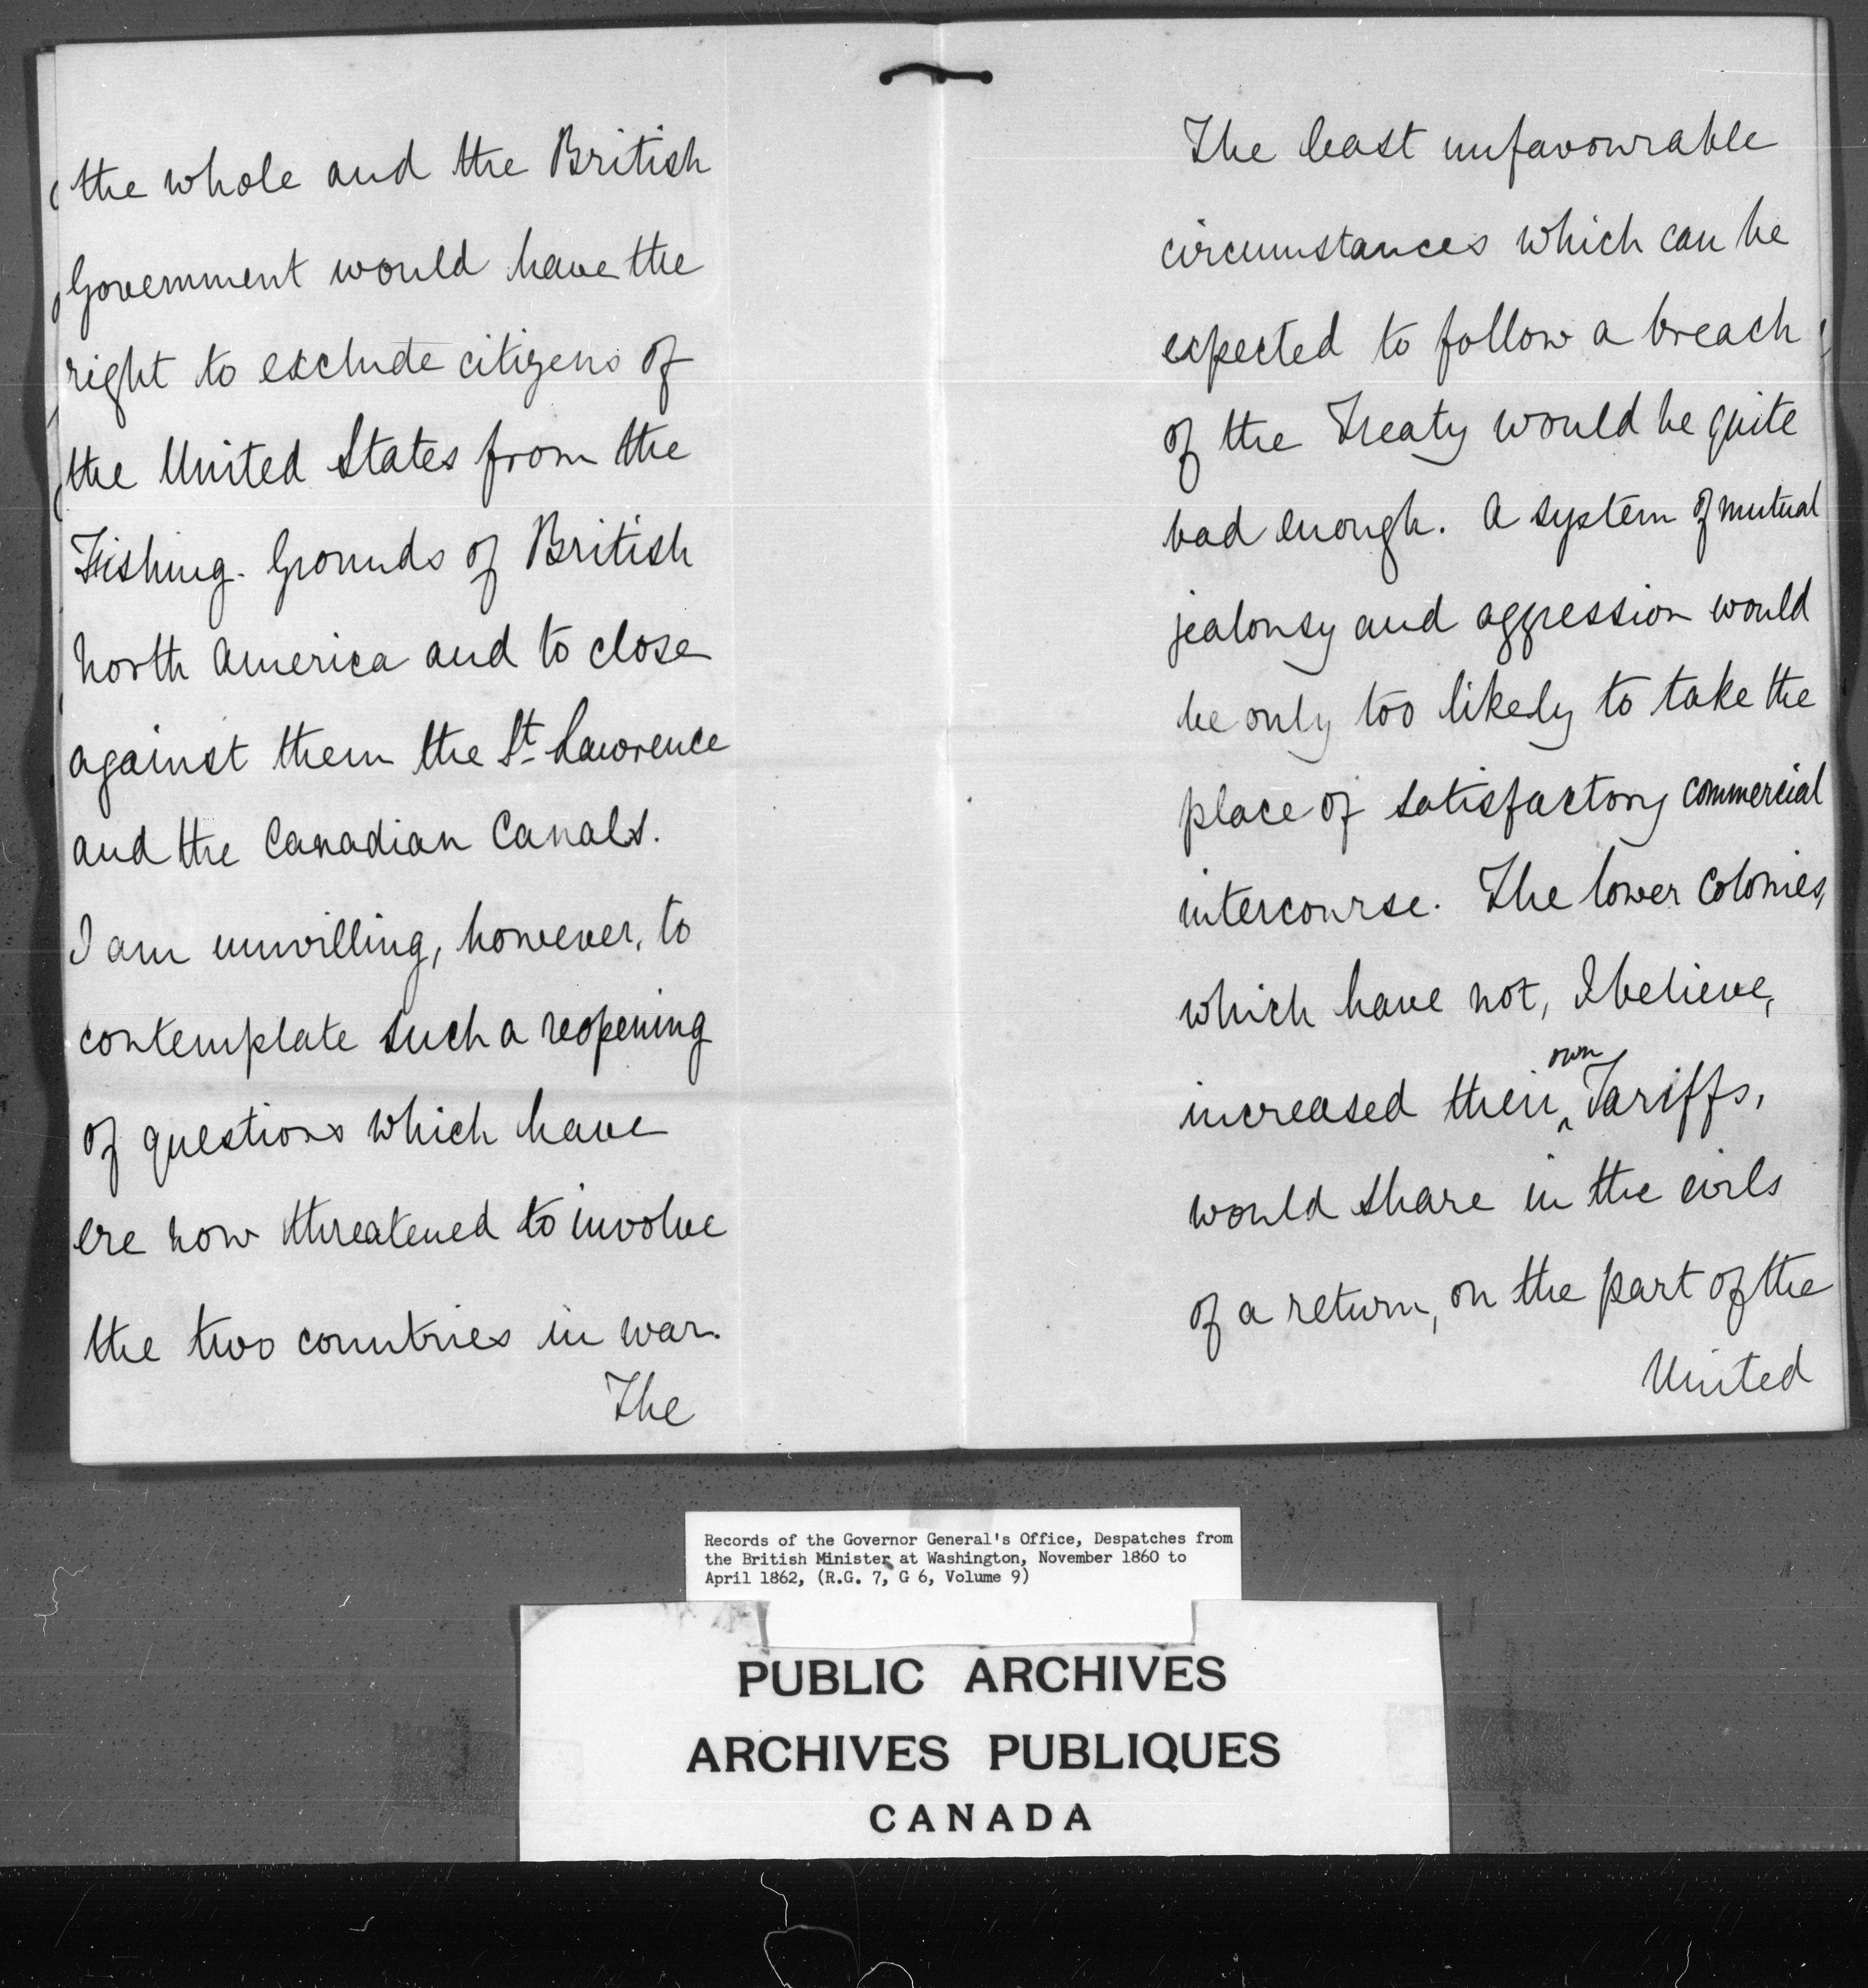 the whole and the British
Government would have the
right to exclude citizens of
the United States from the
Fishing-Grounds of British
North America and to close
against them the St. Lawrence
and the Canadian Canals.
I am unwilling, however, to
contemplate such a reopening
of questions which have
ere now threatened to involve
the two countries in war.
The
The least unfavourable
circumstances which can be
expected to follow a breach
of the Treaty would be quite
bad enough. A system of mutual
jealousy and aggression would
be only too likely to take the
place of satisfactory commercial
intercourse. The lower Colonies,
which have not, I believe,
increased their own Tariffs,
would share in the evils
of a return, on the part of the
United
Records of the Governor General's Office, Despatches from
the British Minister at Washington, November 1860 to
April 1862, (R.G. 7, G 6, Volume 9)
PUBLIC ARCHIVES
ARCHIVES PUBLIQUES
CANADA